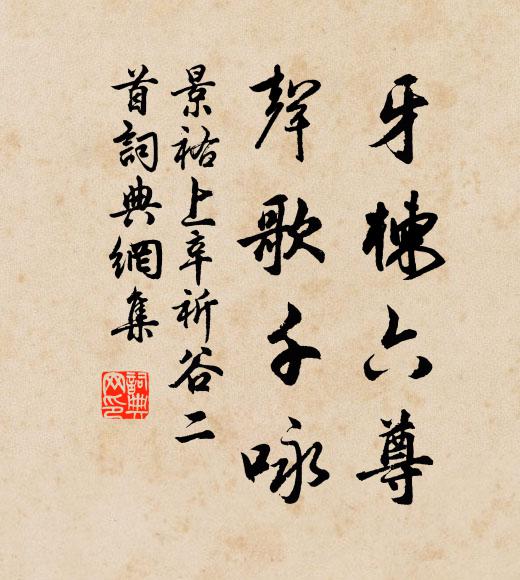 牙棟六尊
聲歌千咏
景祐上辛祈谷二
首詞典網集
詞典
网印